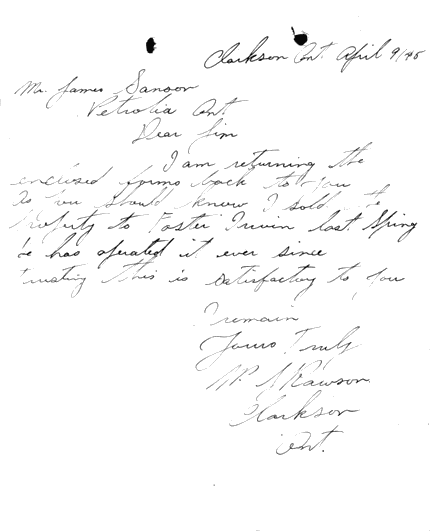 Clarkson Ont. April 9/45
Mr. James Sanson
Petrolia Ont
Dear Jim
I am returning the
enclosed forms back to you
As you should know I sold the
Property to Foster Irwin last Spring
he has operated it ever since
trusting this is satisfactory to you
I remain
Yours Truly
Rawson
Clarkson
Ont.